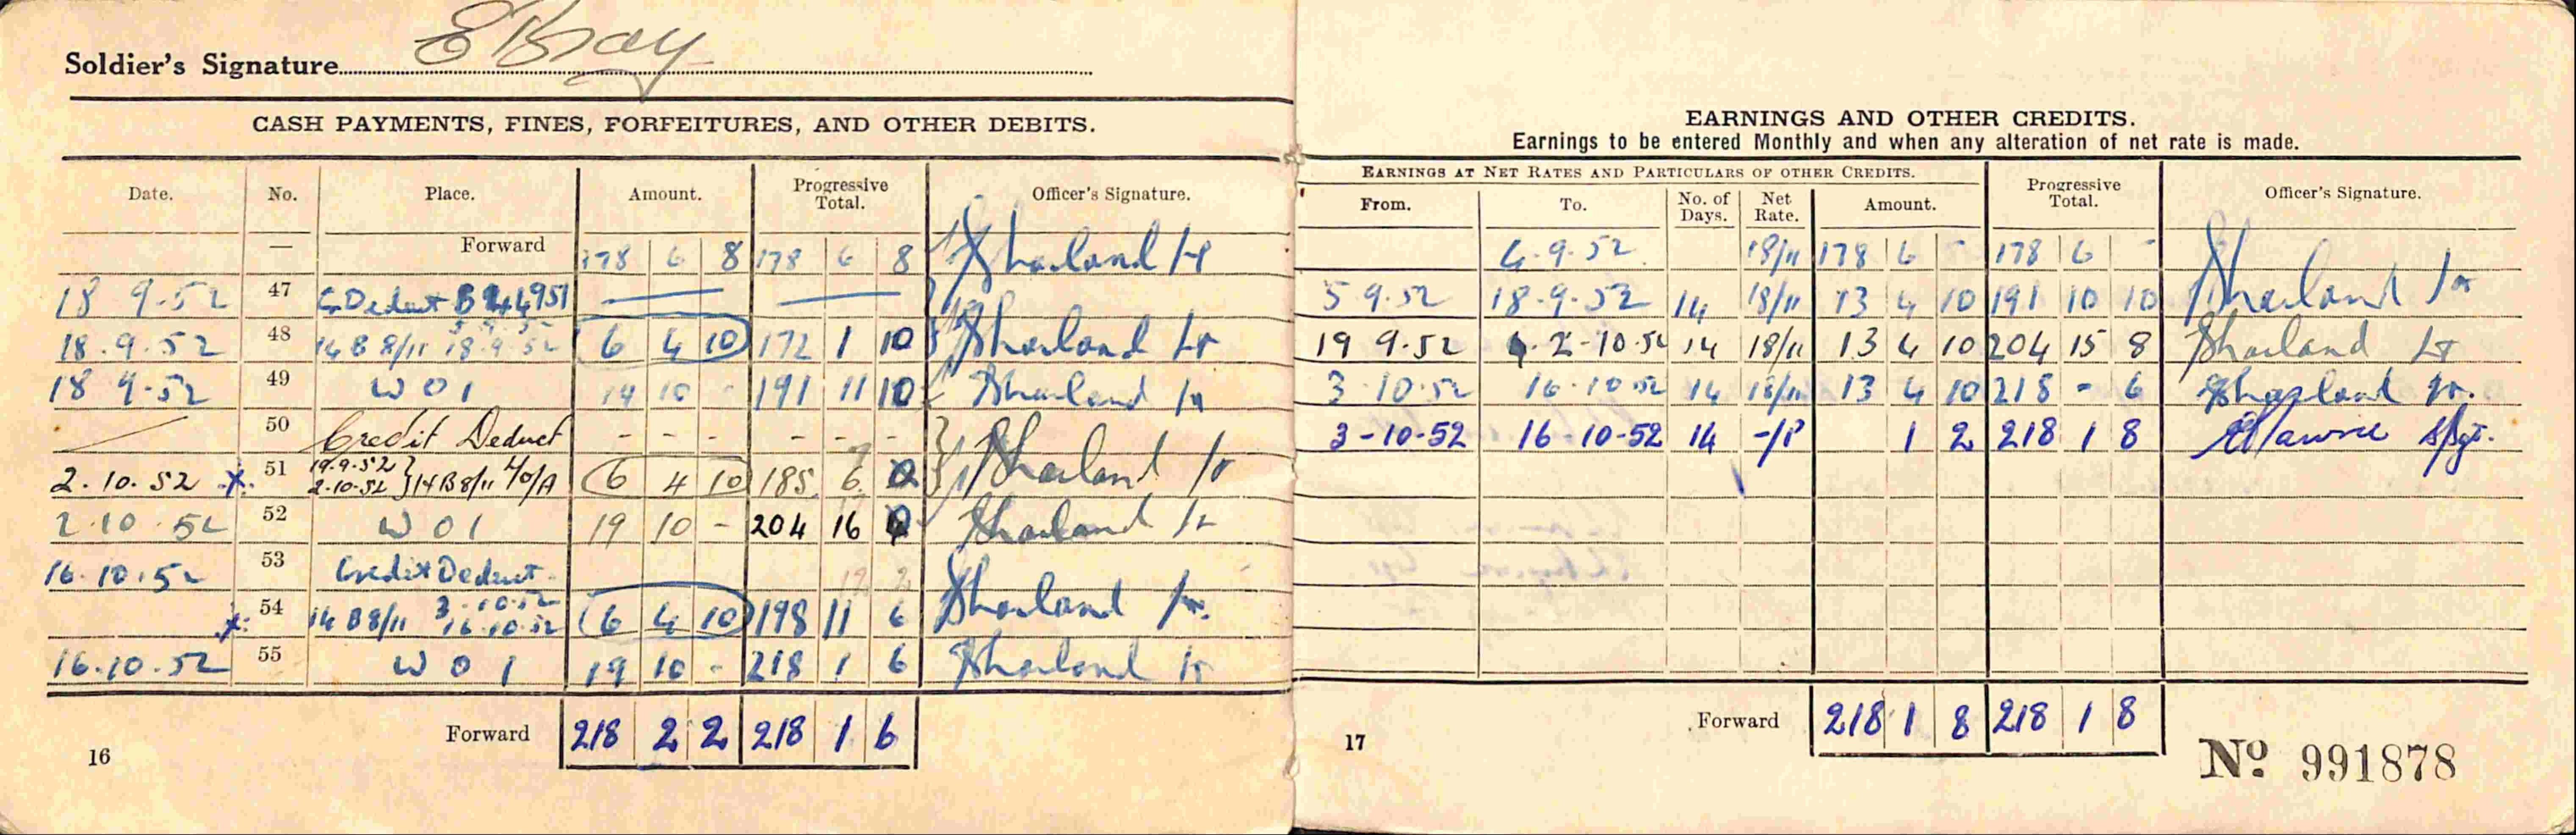 Soldier's Signature E Bray
CASH PAYMENTS, FINES, FORFEITURES, AND OTHER DEBITS.
Date. No. Place. Amount. Progressive Total. Officer's Signature.
— Forward 178 6 8 178 6 8 Sharland Lt
18 9.52 47 C Deduct B 44951
18.9.52 48 14 B 8/11 18.9.52 6 4 10 172 1 10 Sharland Lt
18 9.52 49 W O 1 19 10 - 191 11 10 Sharland Lt
50 Credit Deduct - - - - - -
2.10.52 51 19.9.52 2.10.52 } 14 B 8/11 6 4 10 185 6 Sharland Lt
2.10.52 52 W O 1 19 10 - 204 16 Sharland Lt
16.10.52 53 Credit Deduct
54 14 B 8/11 3.10.52 16.10.52 6 4 10 198 11 6 Sharland Lt.
16.10.52 55 W O 1 19 10 - 218 1 6 Sharland Lt
Forward 218 2 2 218 1 6
16
EARNINGS AND OTHER CREDITS.
Earnings to be entered Monthly and when any alteration of net rate is made.
EARNINGS AT NET RATES AND PARTICULARS OF OTHER CREDITS.
From. To. No. of Days. Net Rate. Amount. Progressive Total. Officer's Signature.
4.9.52 18/11 178 6 - 178 6 - Sharland Lt
5 9.52 18.9.52 14 18/11 13 4 10 191 10 10
19 9.52 2-10.52 14 18/11 13 4 10 204 15 8 Sharland Lt
3.10.52 16.10.52 14 18/11 13 4 10 218 - 6 Sharland Lt.
3-10-52 16-10-52 14 -/1 1 2 218 1 8 S/Sgt.
Forward 218 1 8 218 1 8
17
No. 991878